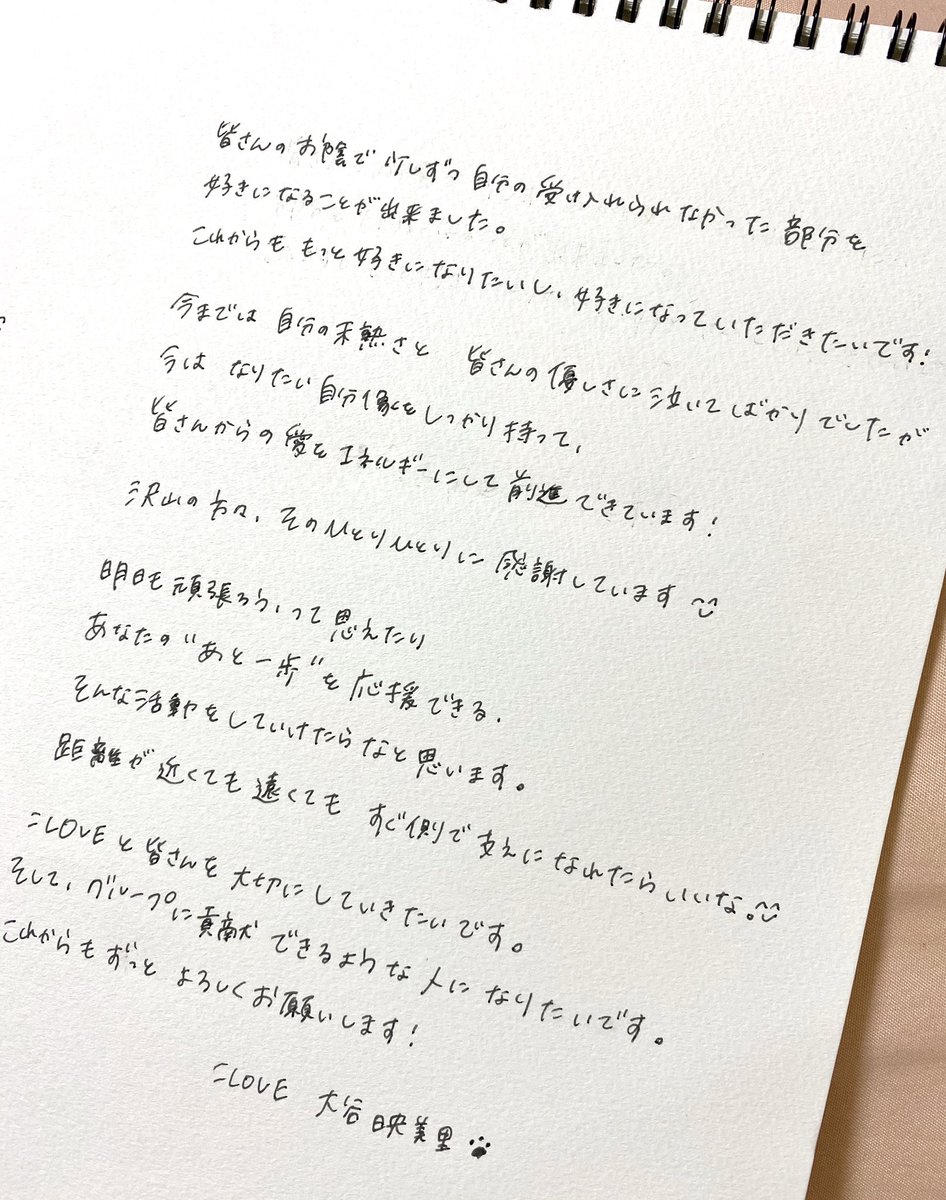 皆さんのお陰で 少しずつ 自分の 受け入れられなかった 部分を
好きになることが出来ました。
これからも もっと 好きになりたいし、好きになっていただきたいです!
今までは 自分の未熟さと 皆さんの優しさに泣いてばかりでしたが
今は なりたい自分像をしっかり持って、
皆さんからの愛をエネルギーにして前進できています!
沢山の方々、そのひとりひとりに 感謝しています ^^
明日も頑張ろう、って 思えたり
あなたの"あと一歩"を応援できる、
そんな活動をしていけたらなと思います。
距離が近くても遠くても すぐ側で支えになれたらいいな。^^
=LOVEと皆さんを大切にしていきたいです。
そして、グループに貢献できるような人になりたいです。
これからもずっと よろしくお願いします!
=LOVE 大谷映美里